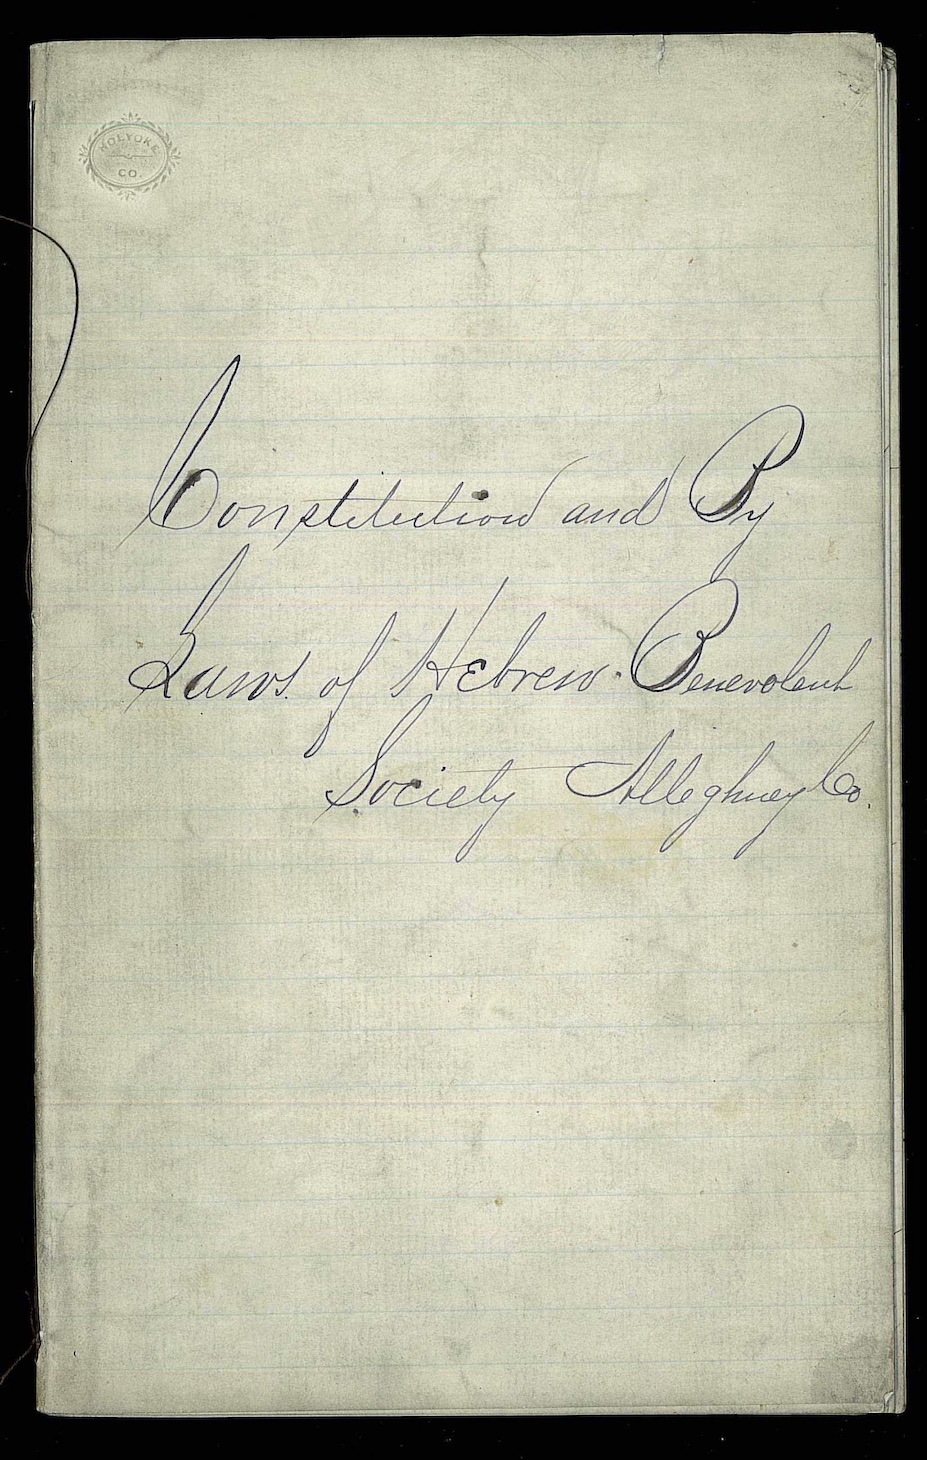 HOLYOKE
CO.
Constitution and By
Laws. of Hebrew Benevolent
Society Alleghney Co.